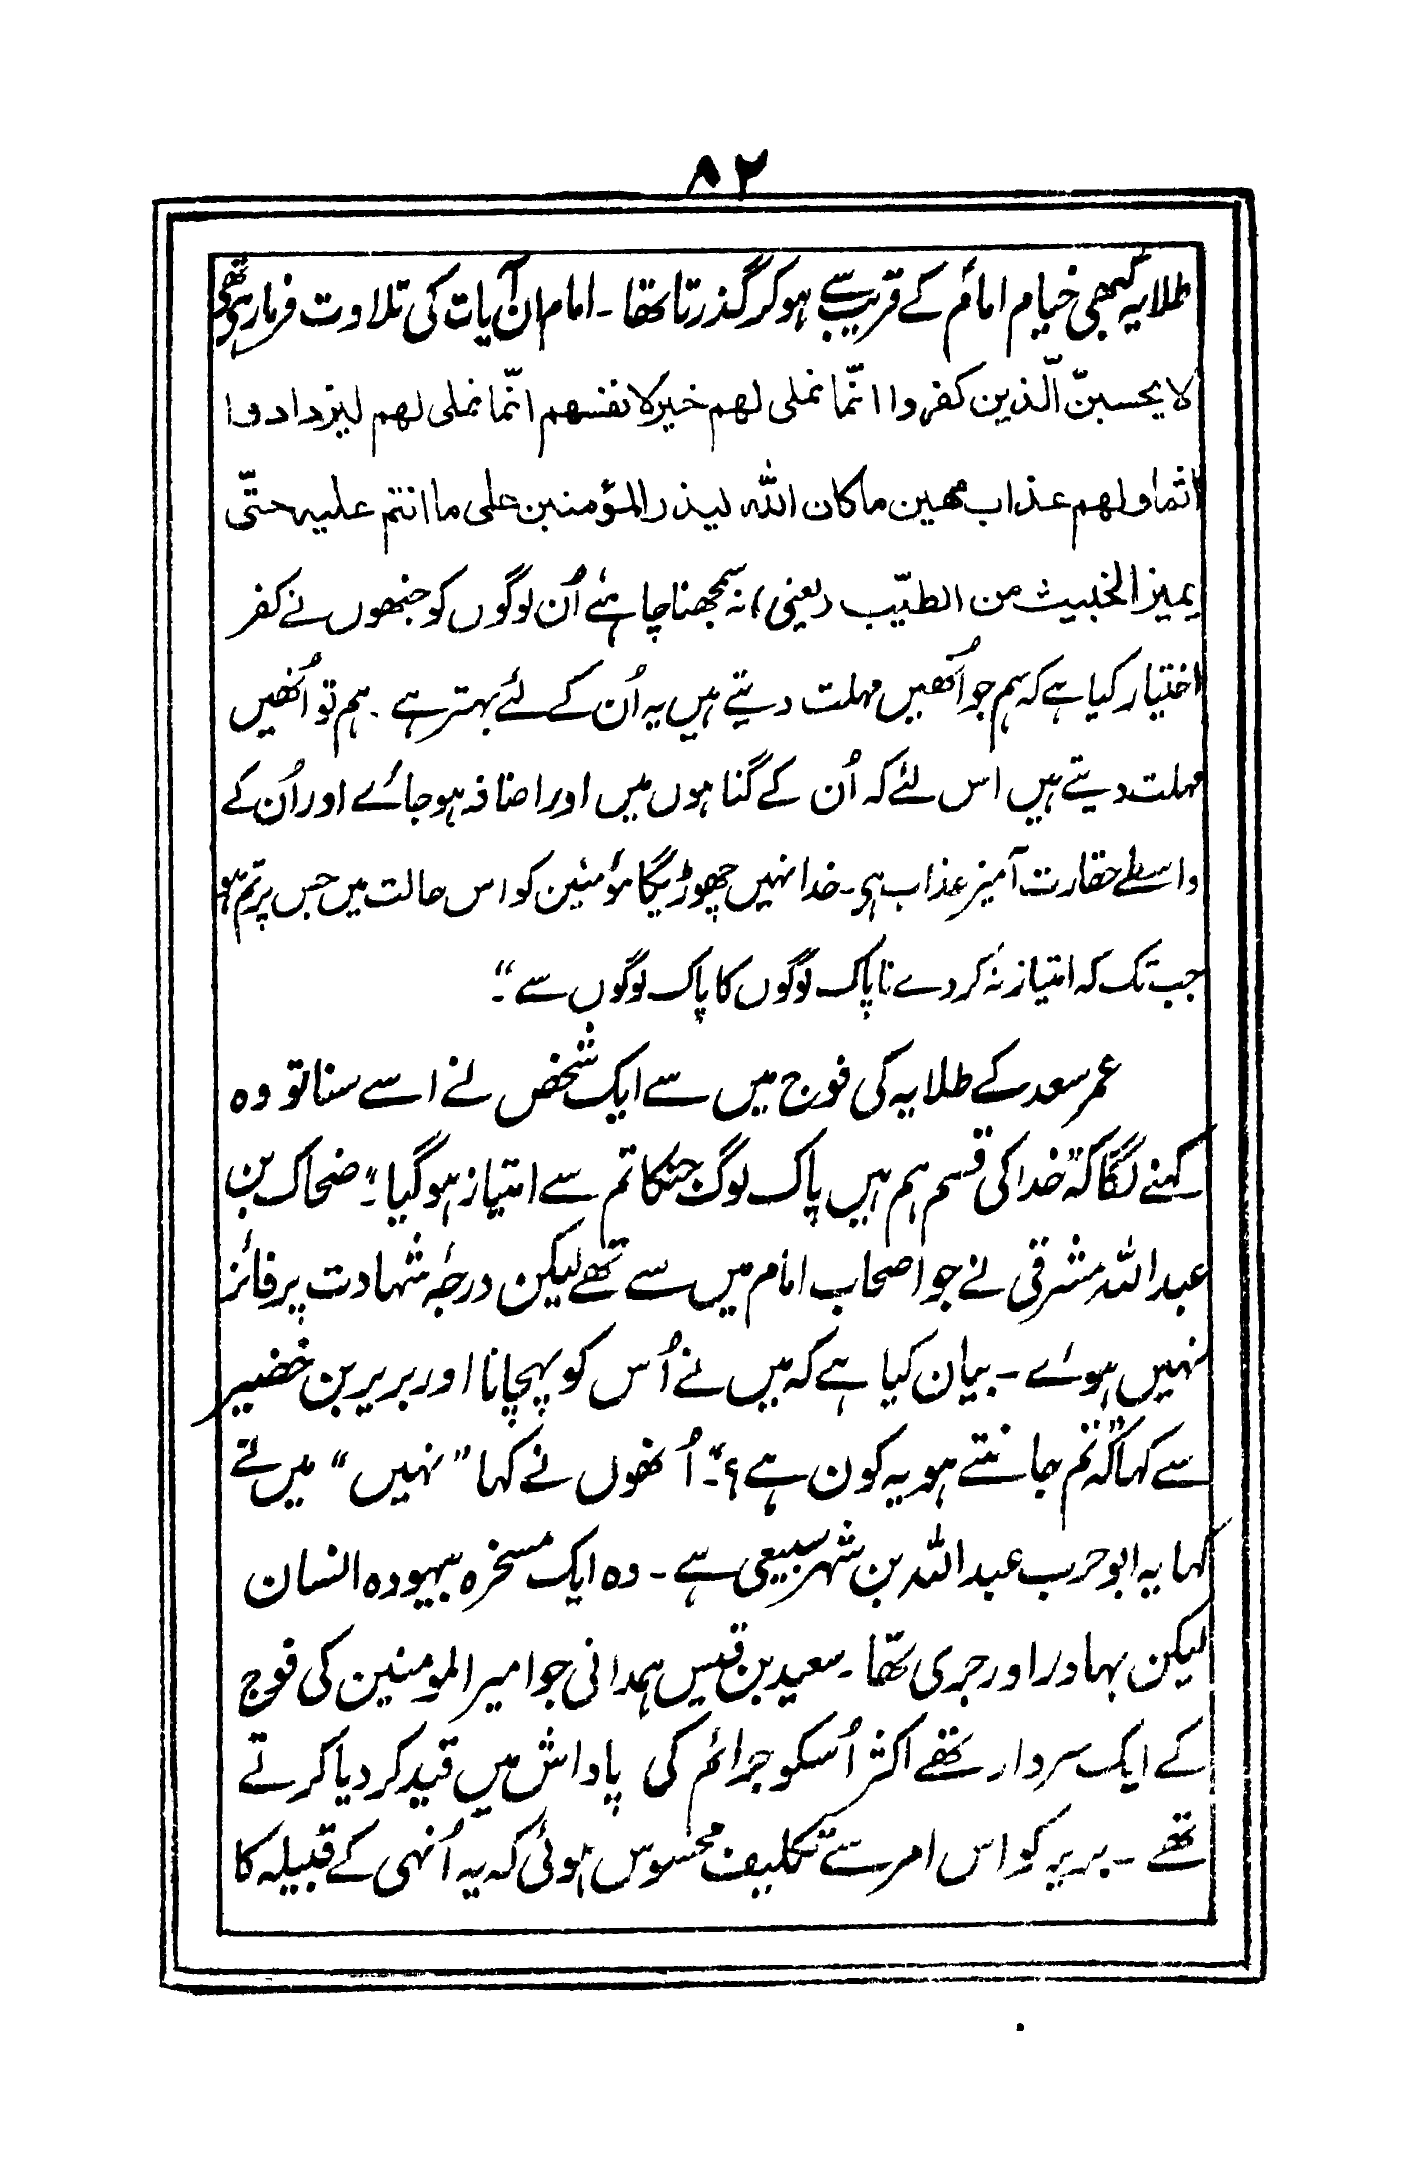 ۸۲
طلایہ کبھی خیام امام کے قریب سے ہو کر گذرتا تھا ۔ امام ان آیات کی تلاوت فرمارہے تھے
لا یحسبنّ الّذین کفروا انّما نملی لھم خیر لانفسھم انّما نملی لھم لیزدادوا
اثما ولھم عذاب مھین ما کان اللہ لیذر المؤمنین علی ما انتم علیہ حتّی
یمیز الخبیث من الطیّب (یعنی) نہ سمجھنا چاہئے اُن لوگوں کو جنھوں نے کفر
اختیار کیا ہے کہ ہم جو اُنھیں مہلت دیتے ہیں یہ اُن کے لئے بہتر ہے ۔ ہم تو اُنھیں
مہلت دیتے ہیں اس لئے کہ اُن کے گناہوں میں اور اضافہ ہو جائے اور اُن کے
واسطے حقارت آمیز عذاب ہی ۔ خدا نہیں چھوڑیگا مؤمنین کو اس حالت میں جس پر تم ہو
جب تک کہ امتیاز نہ کر دے ناپاک لوگوں کا پاک لوگوں سے“ ۔
عمر سعد کے طلایہ کی فوج میں سے ایک شخص نے اسے سنا تو وہ
کہنے لگا کہ ”خدا کی قسم ہم ہیں پاک لوگ جنکا تم سے امتیاز ہو گیا“ ۔ ضحاک بن
عبداللہ مشرقی نے جو اصحاب امام میں سے تھے لیکن درجۂ شہادت پر فائز
نہیں ہوئے ۔ بیان کیا ہے کہ میں نے اُس کو پہچانا اور بریر بن خضیر
سے کہا کہ ”تم جانتے ہو یہ کون ہے ؟“ ۔ اُنھوں نے کہا ”نہیں“ میں نے
کہا یہ ابو حرب عبداللہ بن شہر سبیعی ہے ۔ وہ ایک مسخرہ بیہودہ انسان
لیکن بہادر اور جری تھا ۔ سعید بن قیس ہمدانی جو امیر المومنین کی فوج
کے ایک سردار تھے اکثر اُسکو جرائم کی پاداش میں قید کر دیا کرتے
تھے ۔ بریر کو اس امر سے تکلیف محسوس ہوئی کہ یہ اُنہی کے قبیلہ کا